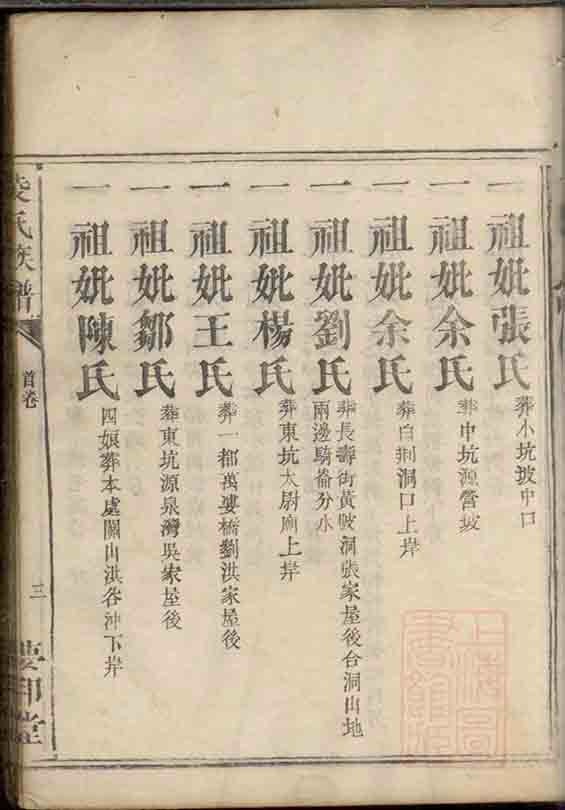 一祖妣張氏 葬小坑坡中口
一祖妣余氏 葬中坑源營坡
一祖妣余氏 葬白荊洞口上岸
一祖妣劉氏 葬長壽街黃陂洞張家屋後合洞山地
兩邊騎崙分水
一祖妣楊氏 葬東坑太尉廟上岸
一祖妣王氏 葬一都萬婁橋劉洪家屋後
一祖妣鄒氏 葬東坑源泉灣吳家屋後
一祖妣陳氏 四娘葬本處關山洪谷沖下岸
氏族譜
首卷
三
堂